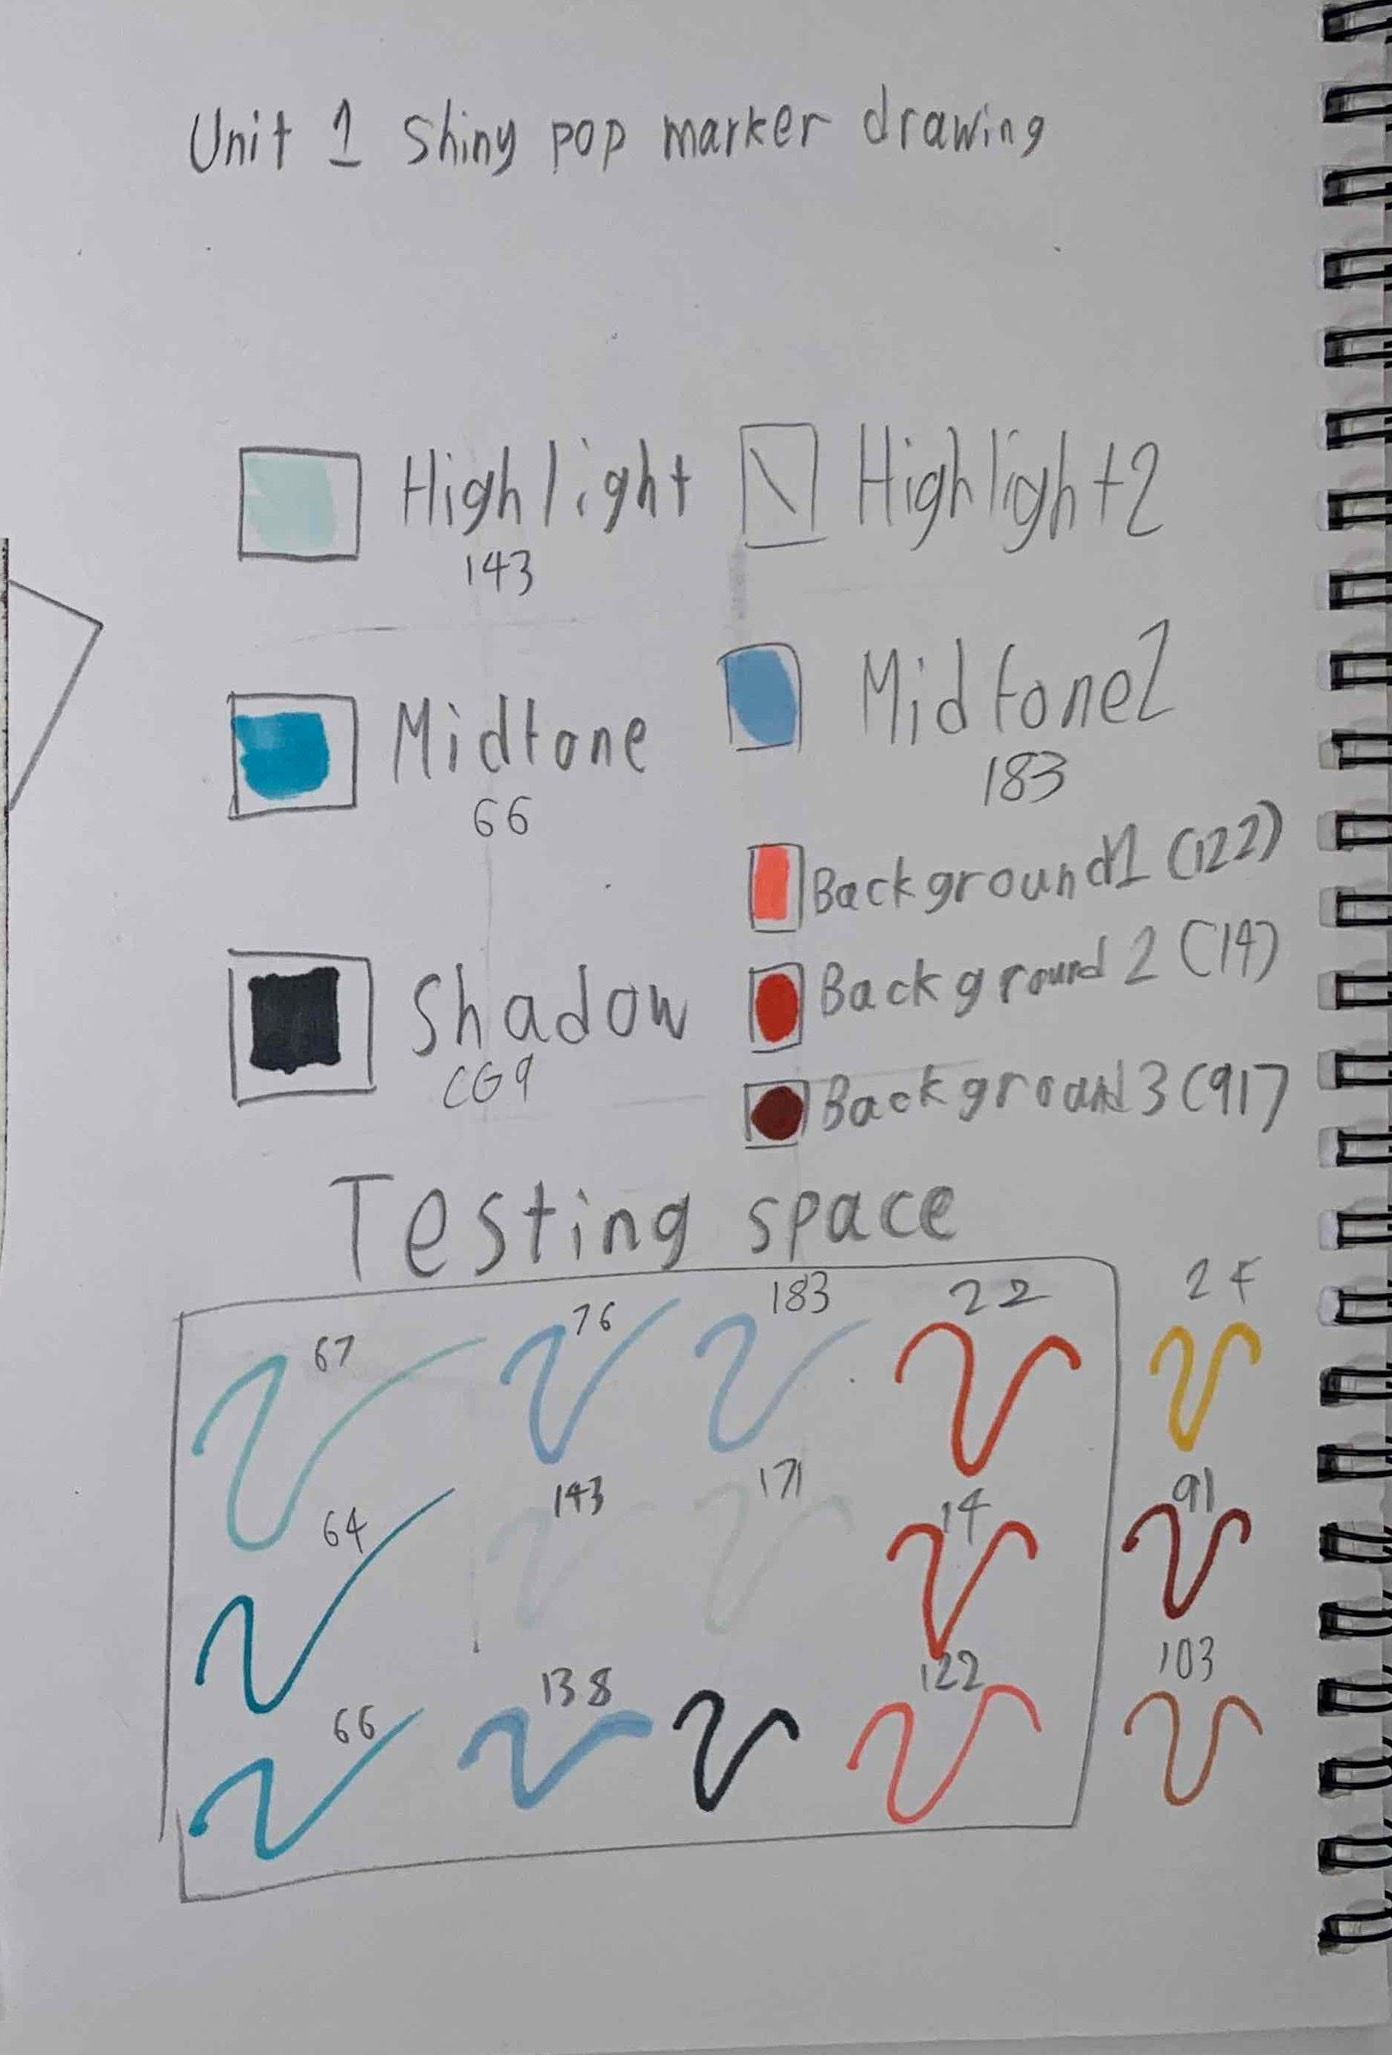 Unit 1 Shiny pop marker drawing
Highlight
143
Highlight2
Midtone
66
Midtone2
183
Background1 (122)
Background 2 (14)
Shadow
CG9
Background 3 (91)
Testing space
67
76
183
22
24
64
143
171
14
91
66
138
122
103